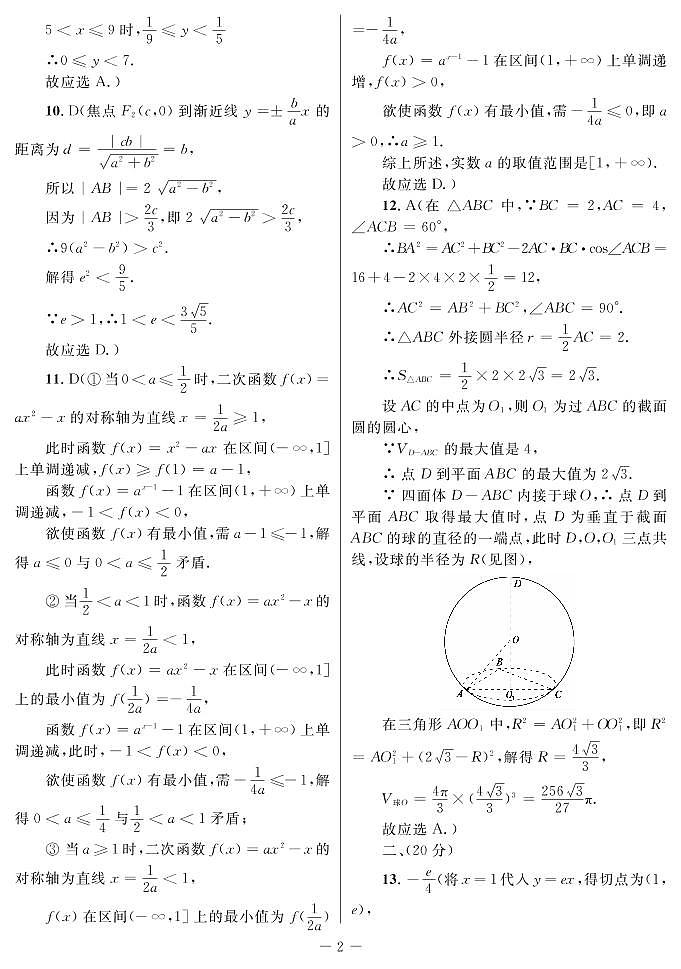 5 < x ≤ 9 时, 1/9 ≤ y < 1/5
∴0 ≤ y < 7.
故应选 A.)
10. D(焦点 F₂(c,0) 到渐近线 y = ± b/a x 的
距离为 d = |cb|/√(a²+b²) = b,
所以 |AB| = 2√(a²−b²),
因为 |AB| > 2c/3, 即 2√(a²−b²) > 2c/3,
∴9(a²−b²) > c².
解得 e² < 9/5.
∵e > 1,∴1 < e < 3√5/5.
故应选 D.)
11. D(① 当 0 < a ≤ 1/2 时,二次函数 f(x) =
ax² − x 的对称轴为直线 x = 1/2a ≥ 1,
此时函数 f(x) = x² − ax 在区间(−∞,1]
上单调递减,f(x) ≥ f(1) = a − 1,
函数 f(x) = aˣ⁻¹ − 1 在区间(1,+∞) 上单
调递减,−1 < f(x) < 0,
欲使函数 f(x) 有最小值,需 a − 1 ≤ −1,解
得 a ≤ 0 与 0 < a ≤ 1/2 矛盾.
② 当 1/2 < a < 1 时,函数 f(x) = ax² − x 的
对称轴为直线 x = 1/2a < 1,
此时函数 f(x) = ax² − x 在区间(−∞,1]
上的最小值为 f(1/2a) = − 1/4a,
函数 f(x) = aˣ⁻¹ − 1 在区间(1,+∞) 上单
调递减,此时,−1 < f(x) < 0,
欲使函数 f(x) 有最小值,需 − 1/4a ≤ −1,解
得 0 < a ≤ 1/4 与 1/2 < a < 1 矛盾;
③ 当 a ≥ 1 时,二次函数 f(x) = ax² − x 的
对称轴为直线 x = 1/2a < 1,
f(x) 在区间(−∞,1] 上的最小值为 f(1/2a)
= − 1/4a,
f(x) = aˣ⁻¹ − 1 在区间(1,+∞) 上单调递
增,f(x) > 0,
欲使函数 f(x) 有最小值,需 − 1/4a ≤ 0,即 a
> 0,∴a ≥ 1.
综上所述,实数 a 的取值范围是[1,+∞).
故应选 D.)
12. A(在 △ABC 中,∵BC = 2,AC = 4,
∠ACB = 60°,
∴BA² = AC² + BC² − 2AC·BC·cos∠ACB =
16 + 4 − 2×4×2× 1/2 = 12,
∴AC² = AB² + BC²,∠ABC = 90°.
∴△ABC 外接圆半径 r = 1/2 AC = 2.
∴S△ABC = 1/2 × 2 × 2√3 = 2√3.
设 AC 的中点为 O₁,则 O₁ 为过 ABC 的截面
圆的圆心,
∵V_D−ABC 的最大值是 4,
∴ 点 D 到平面 ABC 的最大值为 2√3.
∵ 四面体 D − ABC 内接于球 O,∴ 点 D 到
平面 ABC 取得最大值时,点 D 为垂直于截面
ABC 的球的直径的一端点,此时 D,O,O₁ 三点共
线,设球的半径为 R(见图),
D
O
B
A
O₁
C
在三角形 AOO₁ 中,R² = AO₁² + OO₁²,即 R²
= AO₁² + (2√3 − R)²,解得 R = 4√3/3,
V球O = 4π/3 × (4√3/3)³ = 256√3/27 π.
故应选 A.)
二、(20 分)
13. − e/4 (将 x = 1 代入 y = ex,得切点为(1,
e),
— 2 —